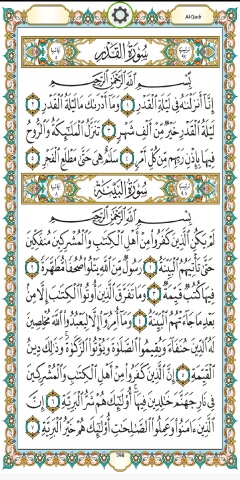 Al-Qadr
سُورَةُ القَدْرِ
بِسْمِ اللَّهِ الرَّحْمَٰنِ الرَّحِيمِ
إِنَّا أَنزَلْنَاهُ فِي لَيْلَةِ الْقَدْرِ ١ وَمَا أَدْرَاكَ مَا لَيْلَةُ الْقَدْرِ ٢
لَيْلَةُ الْقَدْرِ خَيْرٌ مِّنْ أَلْفِ شَهْرٍ ٣ تَنَزَّلُ الْمَلَائِكَةُ وَالرُّوحُ
فِيهَا بِإِذْنِ رَبِّهِم مِّن كُلِّ أَمْرٍ ٤ سَلَامٌ هِيَ حَتَّىٰ مَطْلَعِ الْفَجْرِ ٥
سُورَةُ البَيِّنَةِ
بِسْمِ اللَّهِ الرَّحْمَٰنِ الرَّحِيمِ
لَمْ يَكُنِ الَّذِينَ كَفَرُوا مِنْ أَهْلِ الْكِتَابِ وَالْمُشْرِكِينَ مُنفَكِّينَ
حَتَّىٰ تَأْتِيَهُمُ الْبَيِّنَةُ ١ رَسُولٌ مِّنَ اللَّهِ يَتْلُو صُحُفًا مُّطَهَّرَةً ٢
فِيهَا كُتُبٌ قَيِّمَةٌ ٣ وَمَا تَفَرَّقَ الَّذِينَ أُوتُوا الْكِتَابَ إِلَّا مِن
بَعْدِ مَا جَاءَتْهُمُ الْبَيِّنَةُ ٤ وَمَا أُمِرُوا إِلَّا لِيَعْبُدُوا اللَّهَ مُخْلِصِينَ
لَهُ الدِّينَ حُنَفَاءَ وَيُقِيمُوا الصَّلَاةَ وَيُؤْتُوا الزَّكَاةَ وَذَٰلِكَ دِينُ
الْقَيِّمَةِ ٥ إِنَّ الَّذِينَ كَفَرُوا مِنْ أَهْلِ الْكِتَابِ وَالْمُشْرِكِينَ
فِي نَارِ جَهَنَّمَ خَالِدِينَ فِيهَا أُولَٰئِكَ هُمْ شَرُّ الْبَرِيَّةِ ٦ إِنَّ
الَّذِينَ آمَنُوا وَعَمِلُوا الصَّالِحَاتِ أُولَٰئِكَ هُمْ خَيْرُ الْبَرِيَّةِ ٧
598